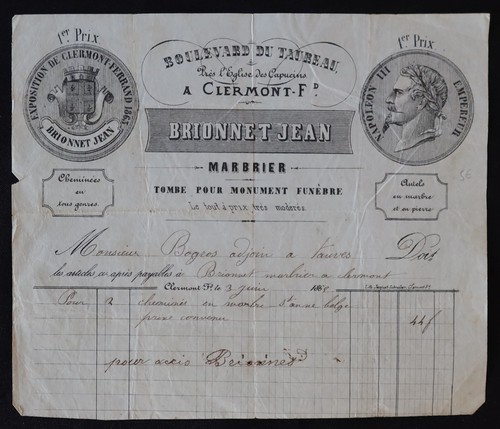 1er Prix
EXPOSITION DE CLERMONT-FERRAND 1863
BRIONNET JEAN
BOULEVARD DU TAUREAU
Près l'Eglise des Capucins
A CLERMONT-Fd.
1er Prix
NAPOLEON III EMPEREUR
BRIONNET JEAN
MARBRIER
TOMBE POUR MONUMENT FUNÈBRE
Le tout à prix très modérés
Cheminées
en
tous genres
Autels
en marbre
et en pierre
Monsieur Bogros adjoin a Tauves Doit
les articles ci-après payables à Brionnet marbrier a clermont
Clermont Fd. le 3 juin 186
Pour 2 cheminée en marbre St anne belge
prix convenu 44f
pour acis Brionnet